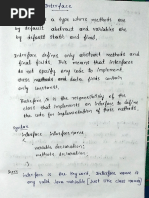 Interface
is a type where methods are
by default abstract and variables are
by default static and final.
Interface defines only abstract methods and
final fields. This means that interfaces
do not specify any code to implement
these methods and data fields contain
only constants.
Therefore it is the responsibility of the
class that implements an interface to define
the code for implementation of these methods.
Syntax
interface interface name
{
variable declaration;
methods declaration;
}
interface is the keyword, interface name is
any valid java variable (just like class name)